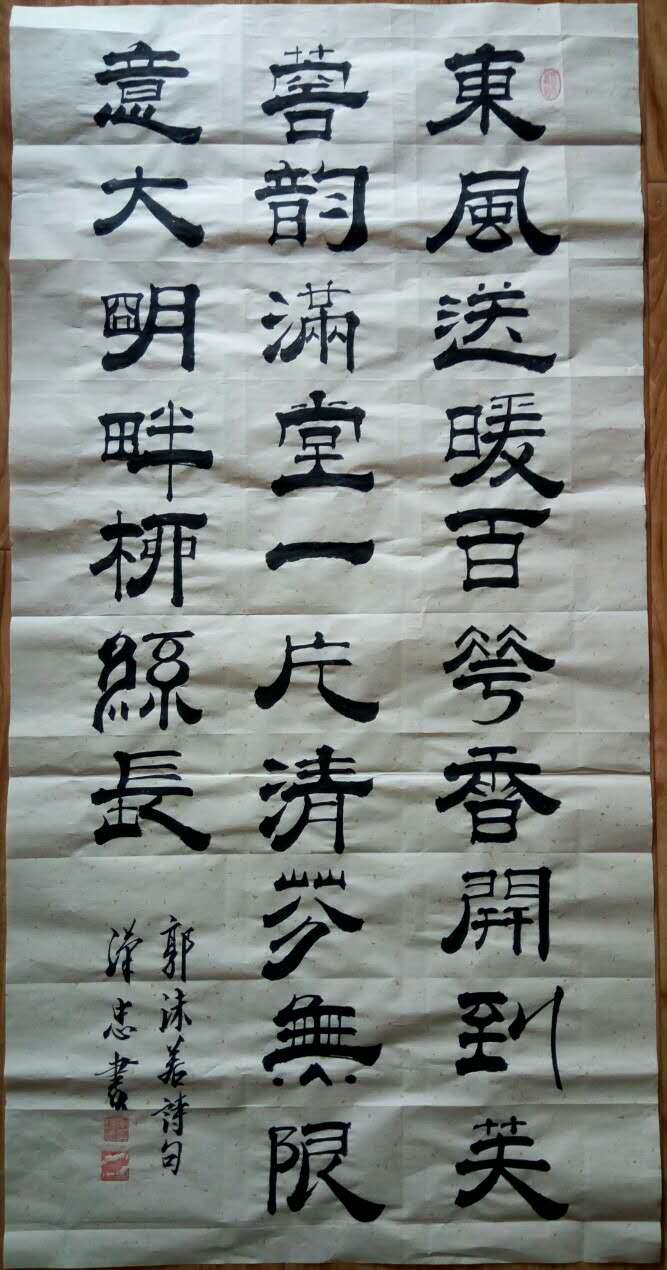 東風送暖百華香開到芙
蓉韵滿堂一片清芬無限
意大明畔柳絲長
郭沫若詩句
漢忠書